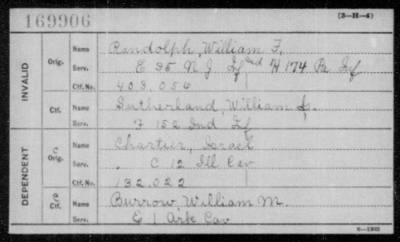 169906
(3-H-4)
INVALID
Orig.
Name Randolph, William F.
Serv. E 35 N J Inf and H 174 Pa Inf
Ctf. No. 403.056
Ctf.
Name Sutherland, William S.
Serv. F 152 Ind Inf
DEPENDENT
Orig. C
Name Chartier, Israel
Serv. C 12 Ill Cav
Ctf. No. 132.022
Ctf. C
Name Burrow, William M.
Serv. E 1 Ark Cav